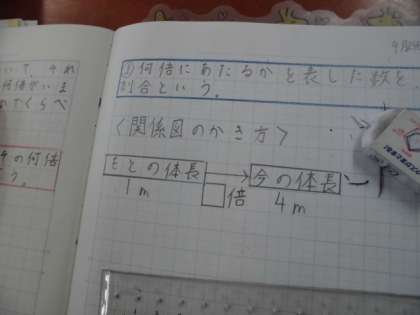 いて、それ
何倍かいま
めてくらべ
の何倍
う。
9月
①何倍にあたるかを表した数を
割合という。
〈関係図のかき方〉
もとの体長 → 今の体長
1m □倍 4m